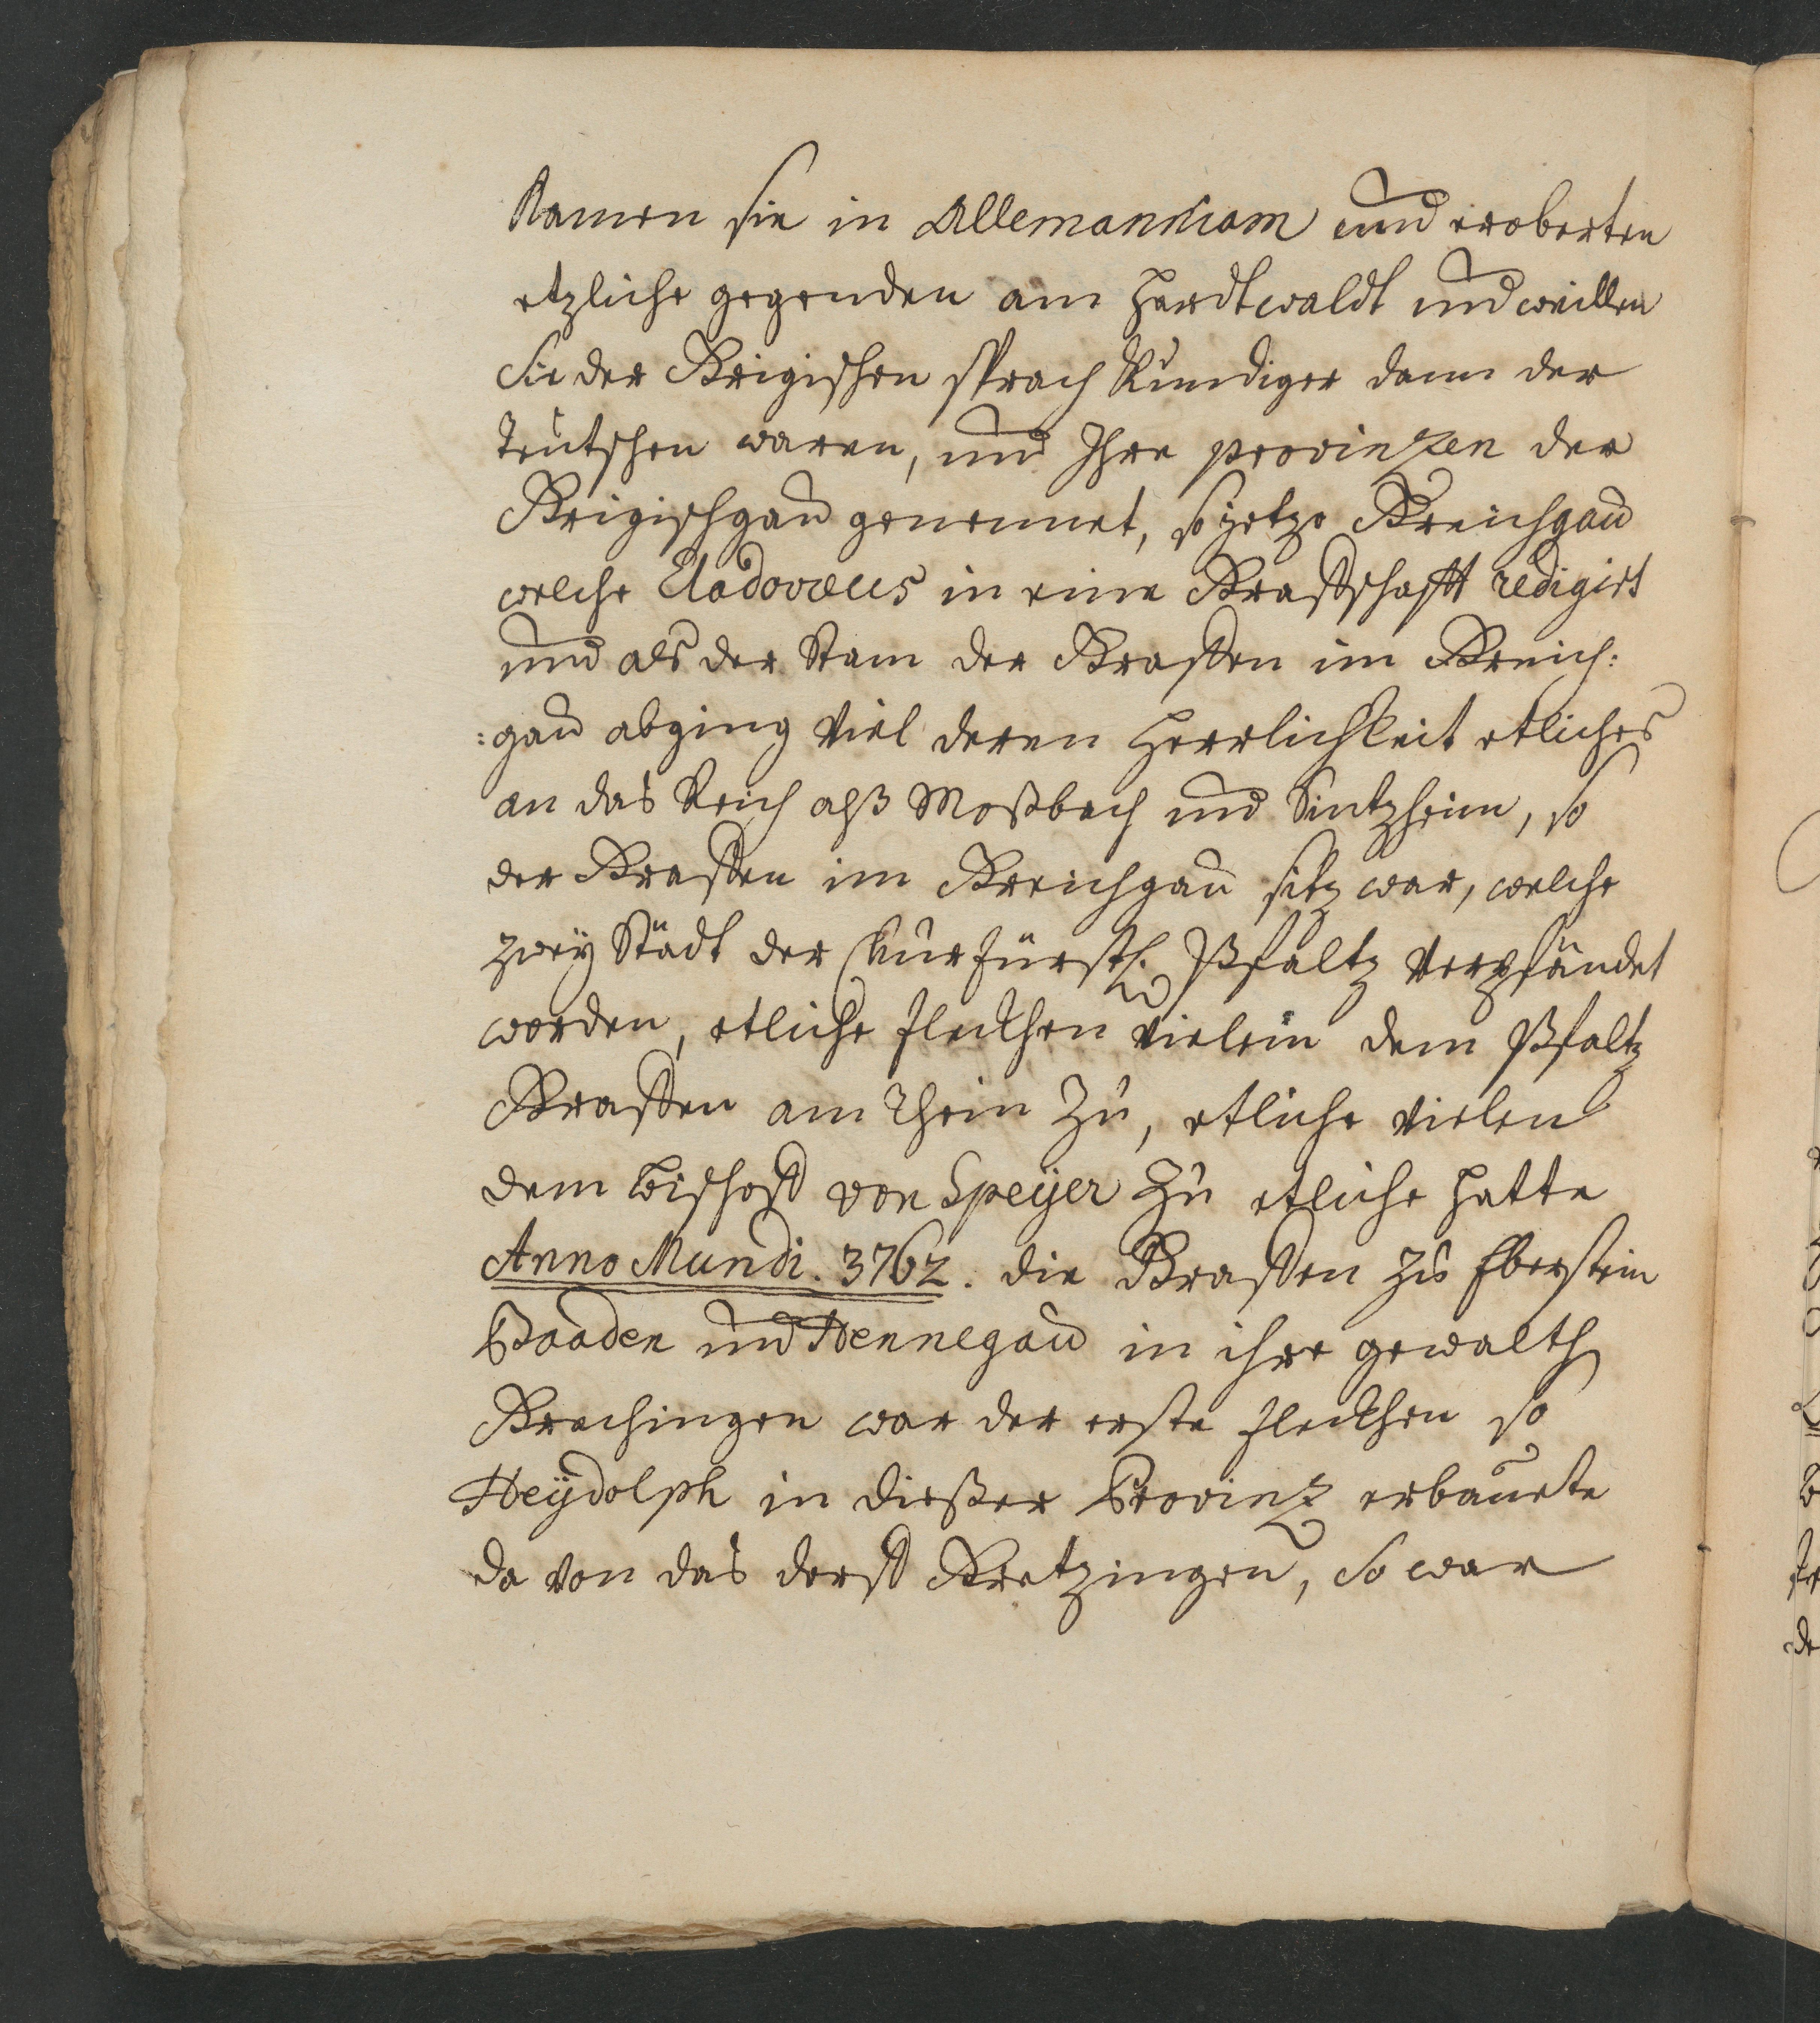 Kamen sie in Allemanniam und eroberten
etzliche gegenden am Hardtwaldt und weillen
Sie der Krigischen sprach Kundiger dann der
Teutschen waren, und Ihre provinzen der
Krigischgau genennet, so ietzo Kreichgau
welche Clodovæus in eine Graffschafft redigirt
und als der Stam der Graffen im Kreich:
:gau abging viel deren Herrlichkeit etliches
an das Reich alß Moßbach und Sintzheim, so
der Graffen im Kreichgau sitz war, welche
zweÿ Städt der Churfürstl. Pfaltz verpfändet
worden, etliche fleckhen vielen dem Pfaltz
Graffen am Rhein zu, etliche vielen
dem Bischoff von Speÿer zu etliche hatte
Anno Mundi. 3762. die Graffen zu Eberstein
Baaden und Hennegau in ihre gewalth
Grechingen war der erste fleckhen so
Heÿdolph in dießer Provinz erbauete
da von das dorff Gretzingen, So war